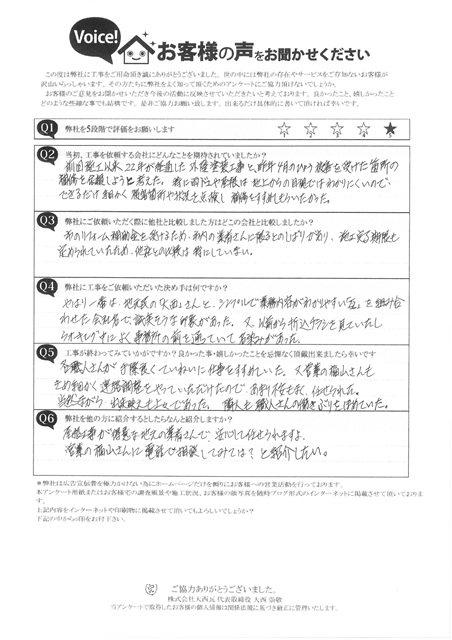 Voice!
お客様の声をお聞かせください
この度は弊社に工事をご用命頂き誠にありがとうございました。世の中には弊社の存在やサービスをご存知ないお客様が
沢山いらっしゃいます。その方たちに弊社をよく知って頂くためのアンケートにご協力頂けないでしょうか。
お客様のご意見をお聞かせいただき今後の活動に反映させていただきたいと考えております。良かったこと、嬉しかったこと
どのような些細な事でも結構です。是非ご協力お願い致します。出来るだけ具体的に書いて頂ければ幸いです。
Q1 弊社を5段階で評価をお願いします
☆ ☆ ☆ ☆ ★
Q2 当初、工事を依頼する会社にどんなことを期待されていましたか?
前回施工以来、22年が経過した外壁塗装工事と、昨年4月のひょう被害を受けた箇所の
補修を依頼しようと考えた。特に雨どいや屋根は地上からの目視ではわかりにくいので
できるだけ細かく被害箇所や状況を点検し、補修をすすめてもらいたかった。
Q3 弊社にご依頼いただく際に他社と比較しました方はどこの会社と比較しましたか?
市のリフォーム補助金を受けるため、市内の業者さんに限るとのしばりがあり、施工完了期限も
定められていたため、他社との比較は特にしていない。
Q4 弊社に工事をご依頼いただいた決め手は何ですか?
やはり一番は、地元民の「大西」さんと、シンプルで業務内容がわかりやすい「瓦」を組み合
わせた会社名で、誠実そうな印象があった。又、以前から折込チラシを見ていたし
ウォーキング中によく事務所の前を通っていて
Q5 工事が終わってみていかがですか?良かった事・嬉しかったことを忌憚なく頂戴出来ましたら幸いです
各職人さんが手際良くていねいに仕事をすすめていた。又営業の福山さんも
きめ細かく連絡調整をやっていただけたので、お引き
当然ながら、出来映えも上々であった。隣人も職人さんの働きぶりをほめていた。
Q6 弊社を他の方に紹介するとしたらなんと紹介しますか?
屋根工事が得意な地元の業者さんで、安心して任せられますよ。
営業の福山さんに電話で相談してみては?と紹介したい。
＊弊社は広告宣伝費を極力かけない為にホームページだけを頼りにお客様への営業活動を行っております。
本アンケート用紙またはお客様宅の調査風景や施工状況、お客様の顔写真を随時ブログ形式のインターネットに掲載させて頂いております。
上記内容をインターネットや印刷物に掲載させて頂いてもよろしいでしょうか?
下記の中からの印をお付下さい。
ご協力ありがとうございました。
株式会社大西瓦 代表取締役 大西 崇敬
当アンケートで取得したお客様の個人情報は関係法規に基づき厳正に管理いたします。